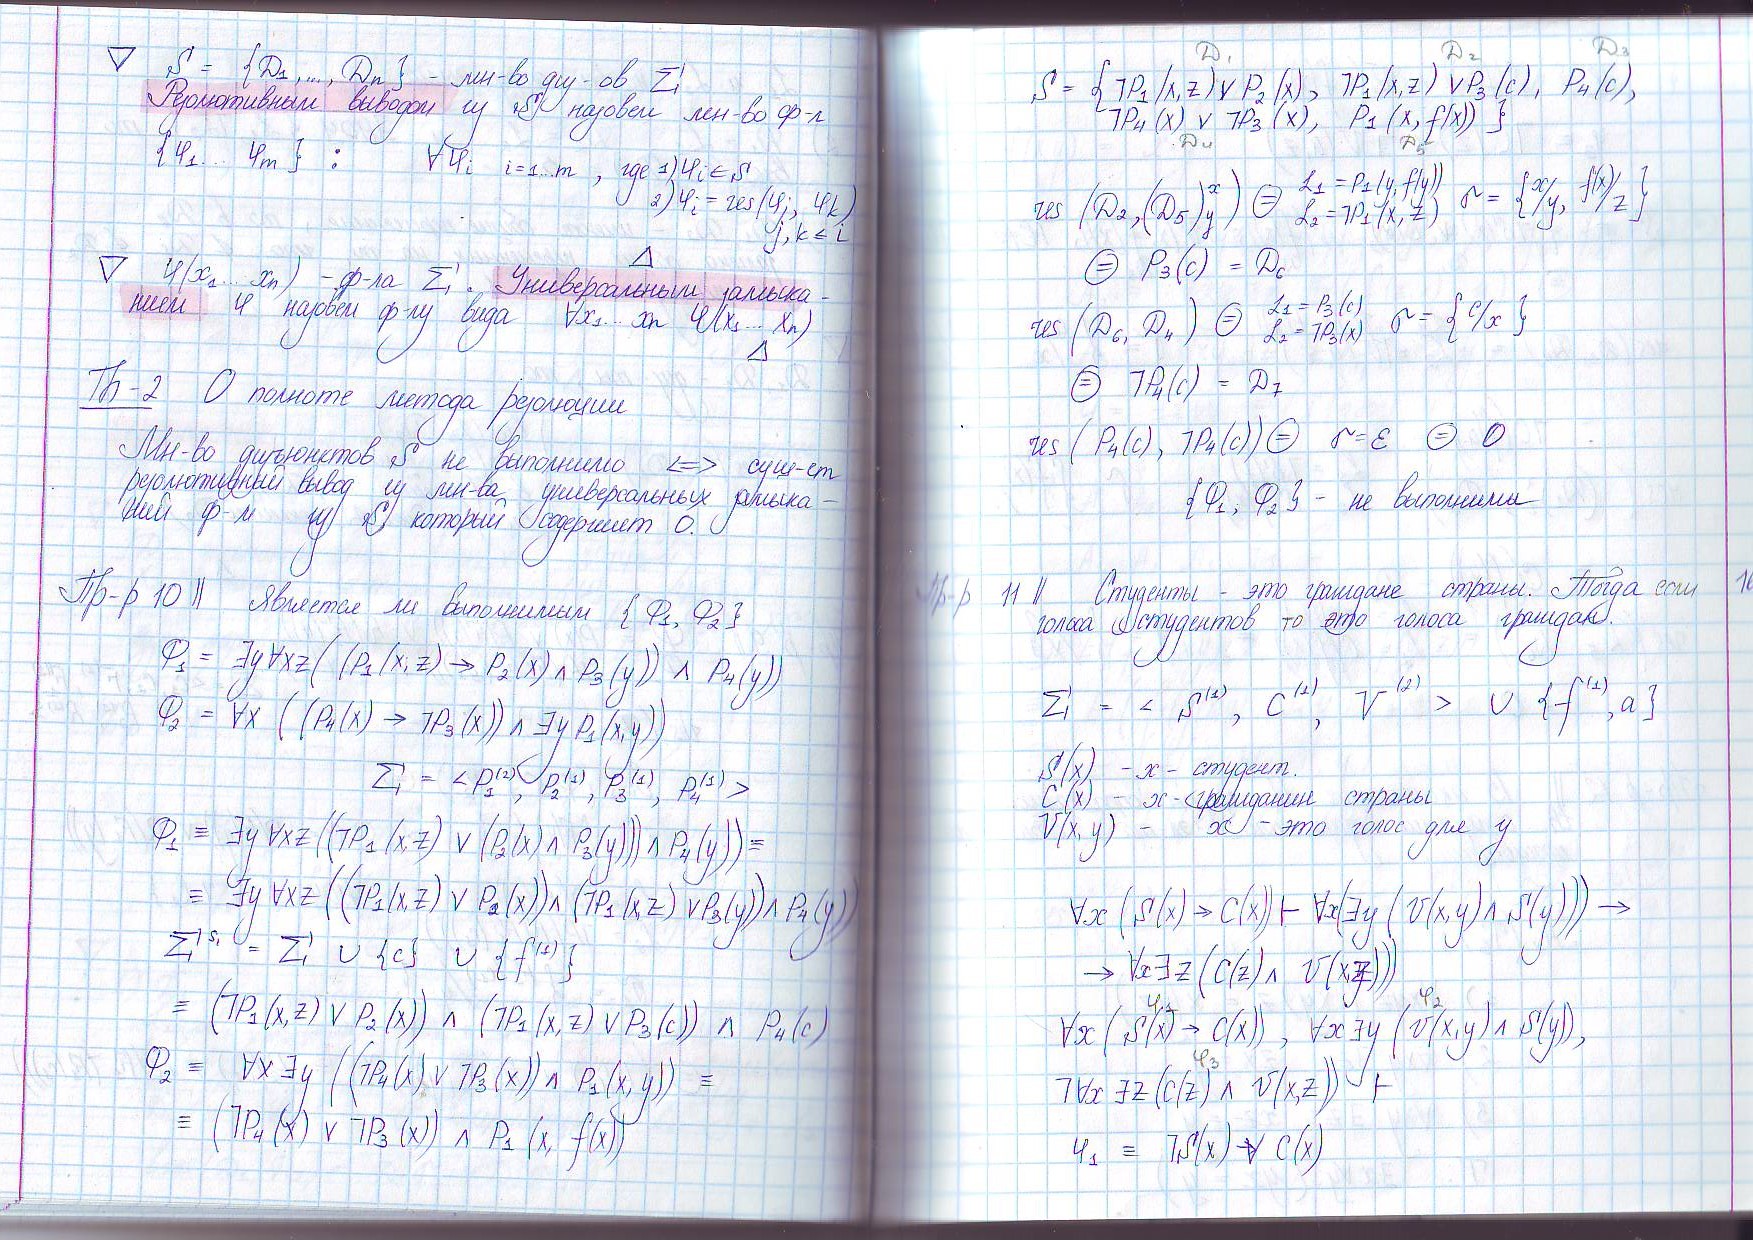 ∇ S = {D₁,..., Dₙ} - мн-во диз-ов Σ
Резолютивным выводом из S назовем мн-во ф-л
{φ₁ ... φₘ} : ∀φᵢ i=1...m, где 1) φᵢ ∈ S
2) φᵢ = res(φⱼ, φₖ)
j, k ≤ i
Δ
∇ φ(x₁...xₙ) - ф-ла Σ. Универсальным замыка-
нием φ назовем ф-лу вида ∀x₁...xₙ φ(x₁...xₙ)
Δ
Th-2 О полноте метода резолюции
Мн-во дизъюнктов S не выполнимо <=> сущ-ет
резолютивный вывод из мн-ва универсальных замыка-
ний ф-л из S, который содержит 0.
Пр-р 10 || Является ли выполнимым {Φ₁, Φ₂}
Φ₁ = ∃y∀xz((P₁(x,z) → P₂(x) ∧ P₃(y)) ∧ P₄(y))
Φ₂ = ∀x((P₄(x) → ¬P₃(x)) ∧ ∃y P₁(x,y))
Σ = <P₁⁽²⁾, P₂⁽¹⁾, P₃⁽¹⁾, P₄⁽¹⁾>
Φ₁ ≡ ∃y∀xz((¬P₁(x,z) ∨ (P₂(x) ∧ P₃(y))) ∧ P₄(y)) ≡
≡ ∃y∀xz((¬P₁(x,z) ∨ P₂(x)) ∧ (¬P₁(x,z) ∨ P₃(y)) ∧ P₄(y))
Σ^S₁ = Σ ∪ {c} ∪ {f⁽¹⁾}
≡ (¬P₁(x,z) ∨ P₂(x)) ∧ (¬P₁(x,z) ∨ P₃(c)) ∧ P₄(c)
Φ₂ ≡ ∀x∃y((¬P₄(x) ∨ ¬P₃(x)) ∧ P₁(x,y)) ≡
≡ (¬P₄(x) ∨ ¬P₃(x)) ∧ P₁(x, f(x))
D₁ D₂ D₃
S = {¬P₁(x,z) ∨ P₂(x), ¬P₁(x,z) ∨ P₃(c), P₄(c),
¬P₄(x) ∨ ¬P₃(x), P₁(x, f(x))}
D₄ D₅
res(D₂, (D₅)ˣᵧ) ⊜ L₁ = P₁(y, f(y)) L₂ = ¬P₁(x, z) σ = {x/y, f(x)/z}
⊜ P₃(c) = D₆
res(D₆, D₄) ⊜ L₁ = P₃(c) L₂ = ¬P₃(x) σ = {c/x}
⊜ ¬P₄(c) = D₇
res(P₄(c), ¬P₄(c)) ⊜ σ = ε ⊜ 0
{Φ₁, Φ₂} - не выполнима
Пр-р 11 || Студенты - это граждане страны. Тогда если
голоса студентов то это голоса граждан.
Σ = < S⁽¹⁾, C⁽¹⁾, V⁽²⁾ > ∪ {f⁽¹⁾, a}
S(x) - x - студент.
C(x) - x - гражданин страны
V(x,y) - x - это голос для y
∀x(S(x) → C(x)) ⊢ ∀x(∃y(V(x,y) ∧ S(y))) →
→ ∀x∃z(C(z) ∧ V(x,z)))
φ₁ φ₂
∀x(S(x) → C(x)), ∀x∃y(V(x,y) ∧ S(y)),
φ₃
¬∀x∃z(C(z) ∧ V(x,z)) ⊢
φ₁ ≡ ¬S(x) ∨ C(x)